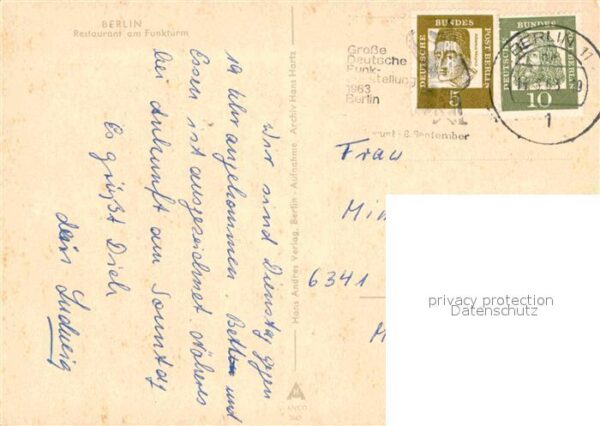 BERLIN
Restaurant am Funkturm
Wir sind Dienstag gegen
19 Uhr angekommen. Betten und
Essen ist ausgezeichnet Näheres
bei Ankunft am Sonntag
Es grüßt Dich
dein Ludwig
Hans Andres Verlag, Berlin - Aufnahme: Archiv Hans Hartz
Große
Deutsche
Funk-
stellung
1963
Berlin
6. September
DEUTSCHE
BUNDES
POST BERLIN
5
DEUTSCHE
BUNDES
POST BERLIN
10
BERLIN 11
1
Frau
6341
privacy protection
Datenschutz